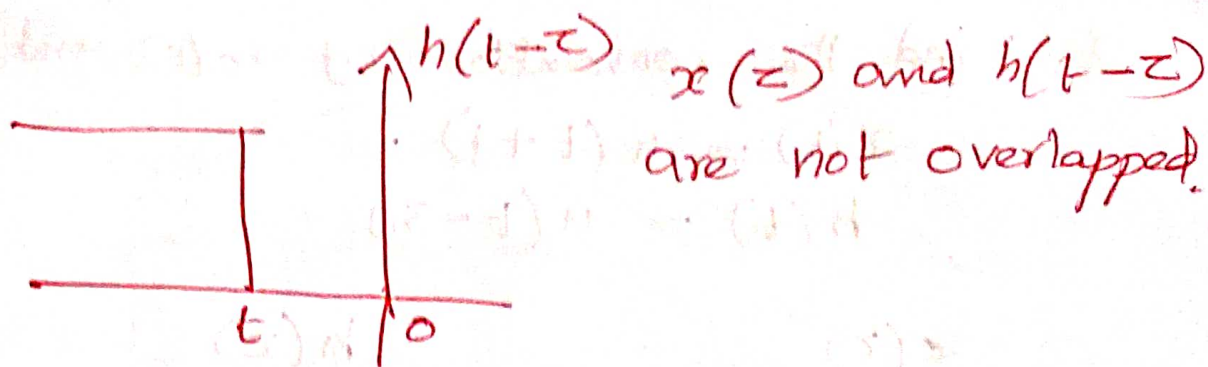 h(t-τ)
x(τ) and h(t-τ)
are not overlapped.
t
0